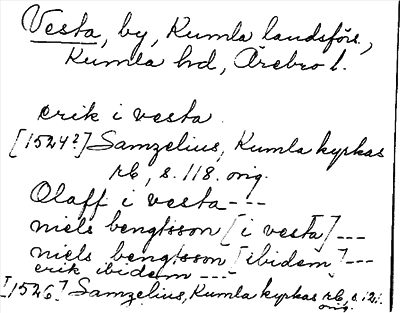 Vesta, by, Kumla landsförs.,
Kumla hd, Örebro l.
erik i vesta
[1524?] Samzelius, Kumla kyrkas
rb, s. 118. orig.
Olaff i vesta ---
niels bengtsson [i vesta] ---
niels bengtsson [ibidem] ---
erik ibidem ---
[1526?] Samzelius, Kumla kyrkas rb, s. 121.
orig.